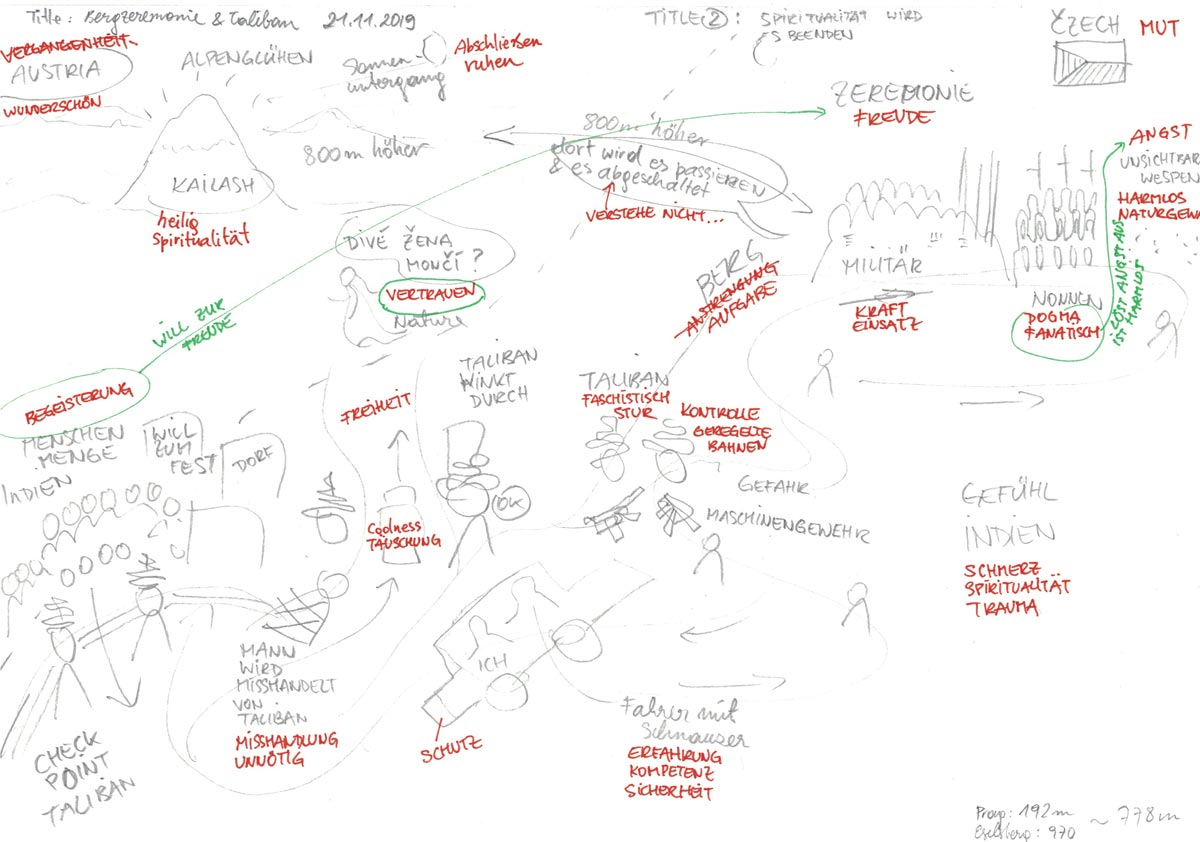 Title: Bergzeremonie & Taliban 21.11.2019
TITLE ②: SPIRITUALITÄT WIRD
ES BEENDEN
CZECH
MUT
VERGANGENHEIT
AUSTRIA
WUNDERSCHÖN
ALPENGLÜHEN
Sonnen-
untergang
Abschließen
ruhen
ZEREMONIE
FREUDE
KAILASH
heilig
Spiritualität
800m höher
800m höher
dort wird es passieren
& es abgeschaltet
VERSTEHE NICHT...
ANGST
UNSICHTBAR
WESPEN
HARMLOS
NATURGEWA
DIVÉ ŽENA
MONČÍ?
VERTRAUEN
Nature
BERG
ANSTRENGUNG
AUFGABE
MILITÄR
KRAFT
EINSATZ
NONNEN
DOGMA
FANATISCH
LÖST ANGST AUS
IST HARMLOS
WILL ZUR
FREUDE
BEGEISTERUNG
MENSCHEN
MENGE
INDIEN
WILL
ZUM
FEST
DORF
FREIHEIT
TALIBAN
WINKT
DURCH
TALIBAN
FASCHISTISCH
STUR
KONTROLLE
GEREGELTE
BAHNEN
GEFAHR
MASCHINENGEWEHR
OK
Coolness
TÄUSCHUNG
GEFÜHL
INDIEN
SCHMERZ
SPIRITUALITÄT
TRAUMA
MANN
WIRD
MISSHANDELT
VON
TALIBAN
MISSHANDLUNG
UNNÖTIG
ICH
SCHUTZ
Fahrer mit
Schnauser
ERFAHRUNG
KOMPETENZ
SICHERHEIT
CHECK
POINT
TALIBAN
Prag: 192m
Eselsberg: 970
~ 778m